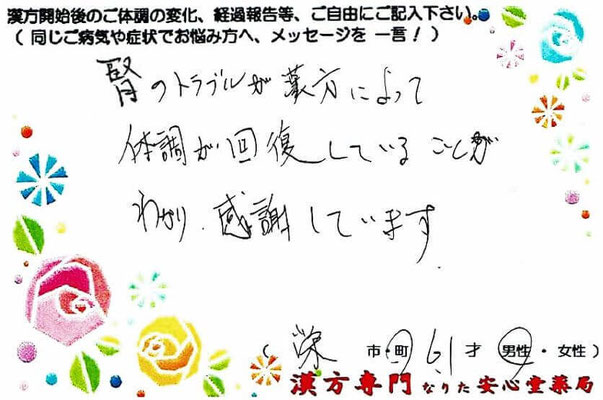 漢方開始後のご体調の変化、経過報告等、ご自由にご記入下さい。
(同じご病気や症状でお悩み方へ、メッセージを 一言!)
腎のトラブルが漢方によって
体調が回復していることが
わかり、感謝しています
(栄 市・町 61才 男性・女性)
漢方専門なりた安心堂薬局